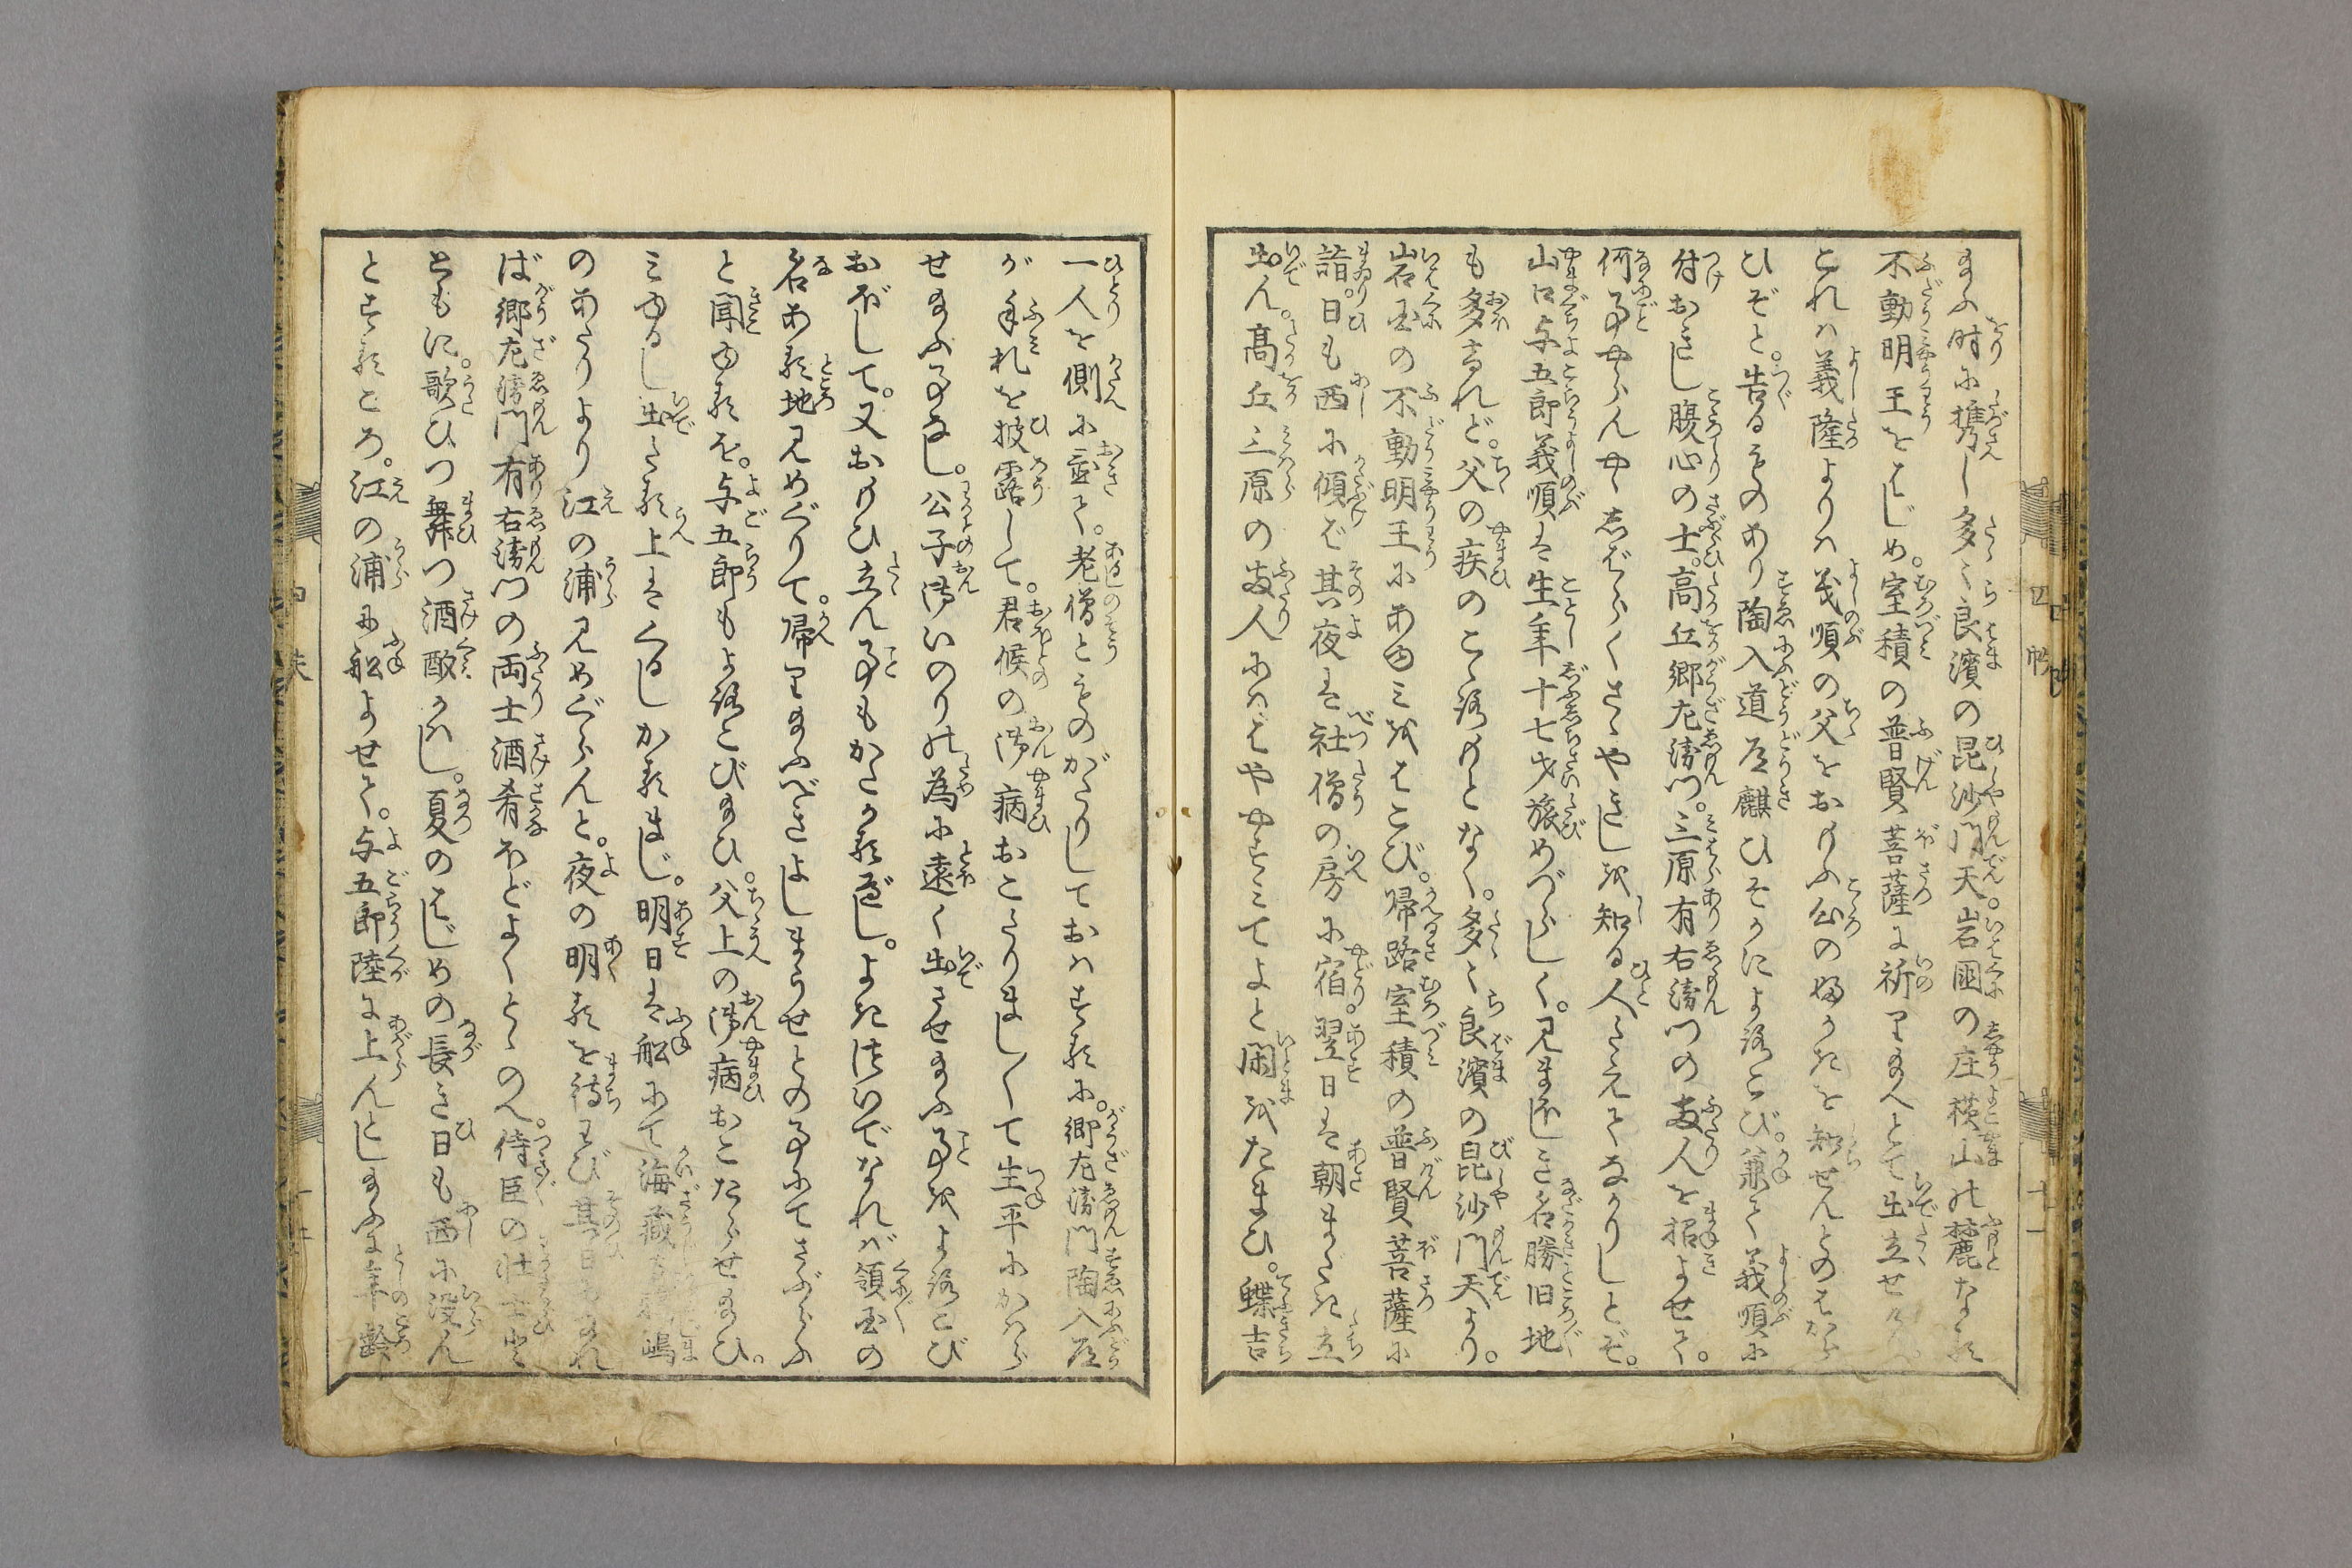 まふ時に携し多々良濱の昆沙門天。岩国の庄横山の麓なる
不動明王をはじめ。室積の普賢菩薩に祈りまへとて出立せ
これハ義隆よりハ義順の父をおもふ心の如かたを知せんとのはから
ひぞと。告るものあり陶入道道麒ひそかによろこび。兼て義順に
付おきし腹心の士。高丘郷左衛門。三原有右衛門の両人を招よせて。
何事やらんやゝしばらくさゝやきしを知る人たえてなかりしとぞ。
山口与五郎義順は生年十七才旅めづらしく。見まほしき名勝旧地
も多かれど。父の疾のこゝろもとなく。多々良濱の昆沙門天より。
岩国の不動明王にあゆミをはこび。帰路室積の普賢菩薩に
詣。日も西に傾ば其夜は社僧の房に宿。翌日は朝まだき立
出ん。高丘三原の両人にハはややすミてよと閑をたまひ。蝶吉
一人を側に置て。老僧とものがたりしておハする に。郷左衛門陶入道
が手札を披露して。君候の御病おこたりまし〳〵て生平にかハら
せまふ事なし。公子御いのりの為に遠く出させまふ事をよろこび
おぼして。又おもひ立ん事もかたかるべし。よきついでなれバ領国の
名ある地見めぐりて。帰りまふべきよしまうせとの事にてさぶらふ
と聞ゆるを。与五郎もよろこびまひ。父上の御病おこたらせまひ。
ミゆるし出たる上はくるしかるまじ。明日は船にて海蔵 嶋
のあたりより江の浦見めぐらんと。夜の明るを待わび其日もなれ
ば郷左衛門有右衛門の両士酒肴ほどよくとゝのへ。侍臣の壮士
ともに。歌ひつ舞つ酒酌かハし。夏のはじめの長き日も西に没ん
とするころ。江の浦に船よせて。与五郎陸に上んとしまふに年齢